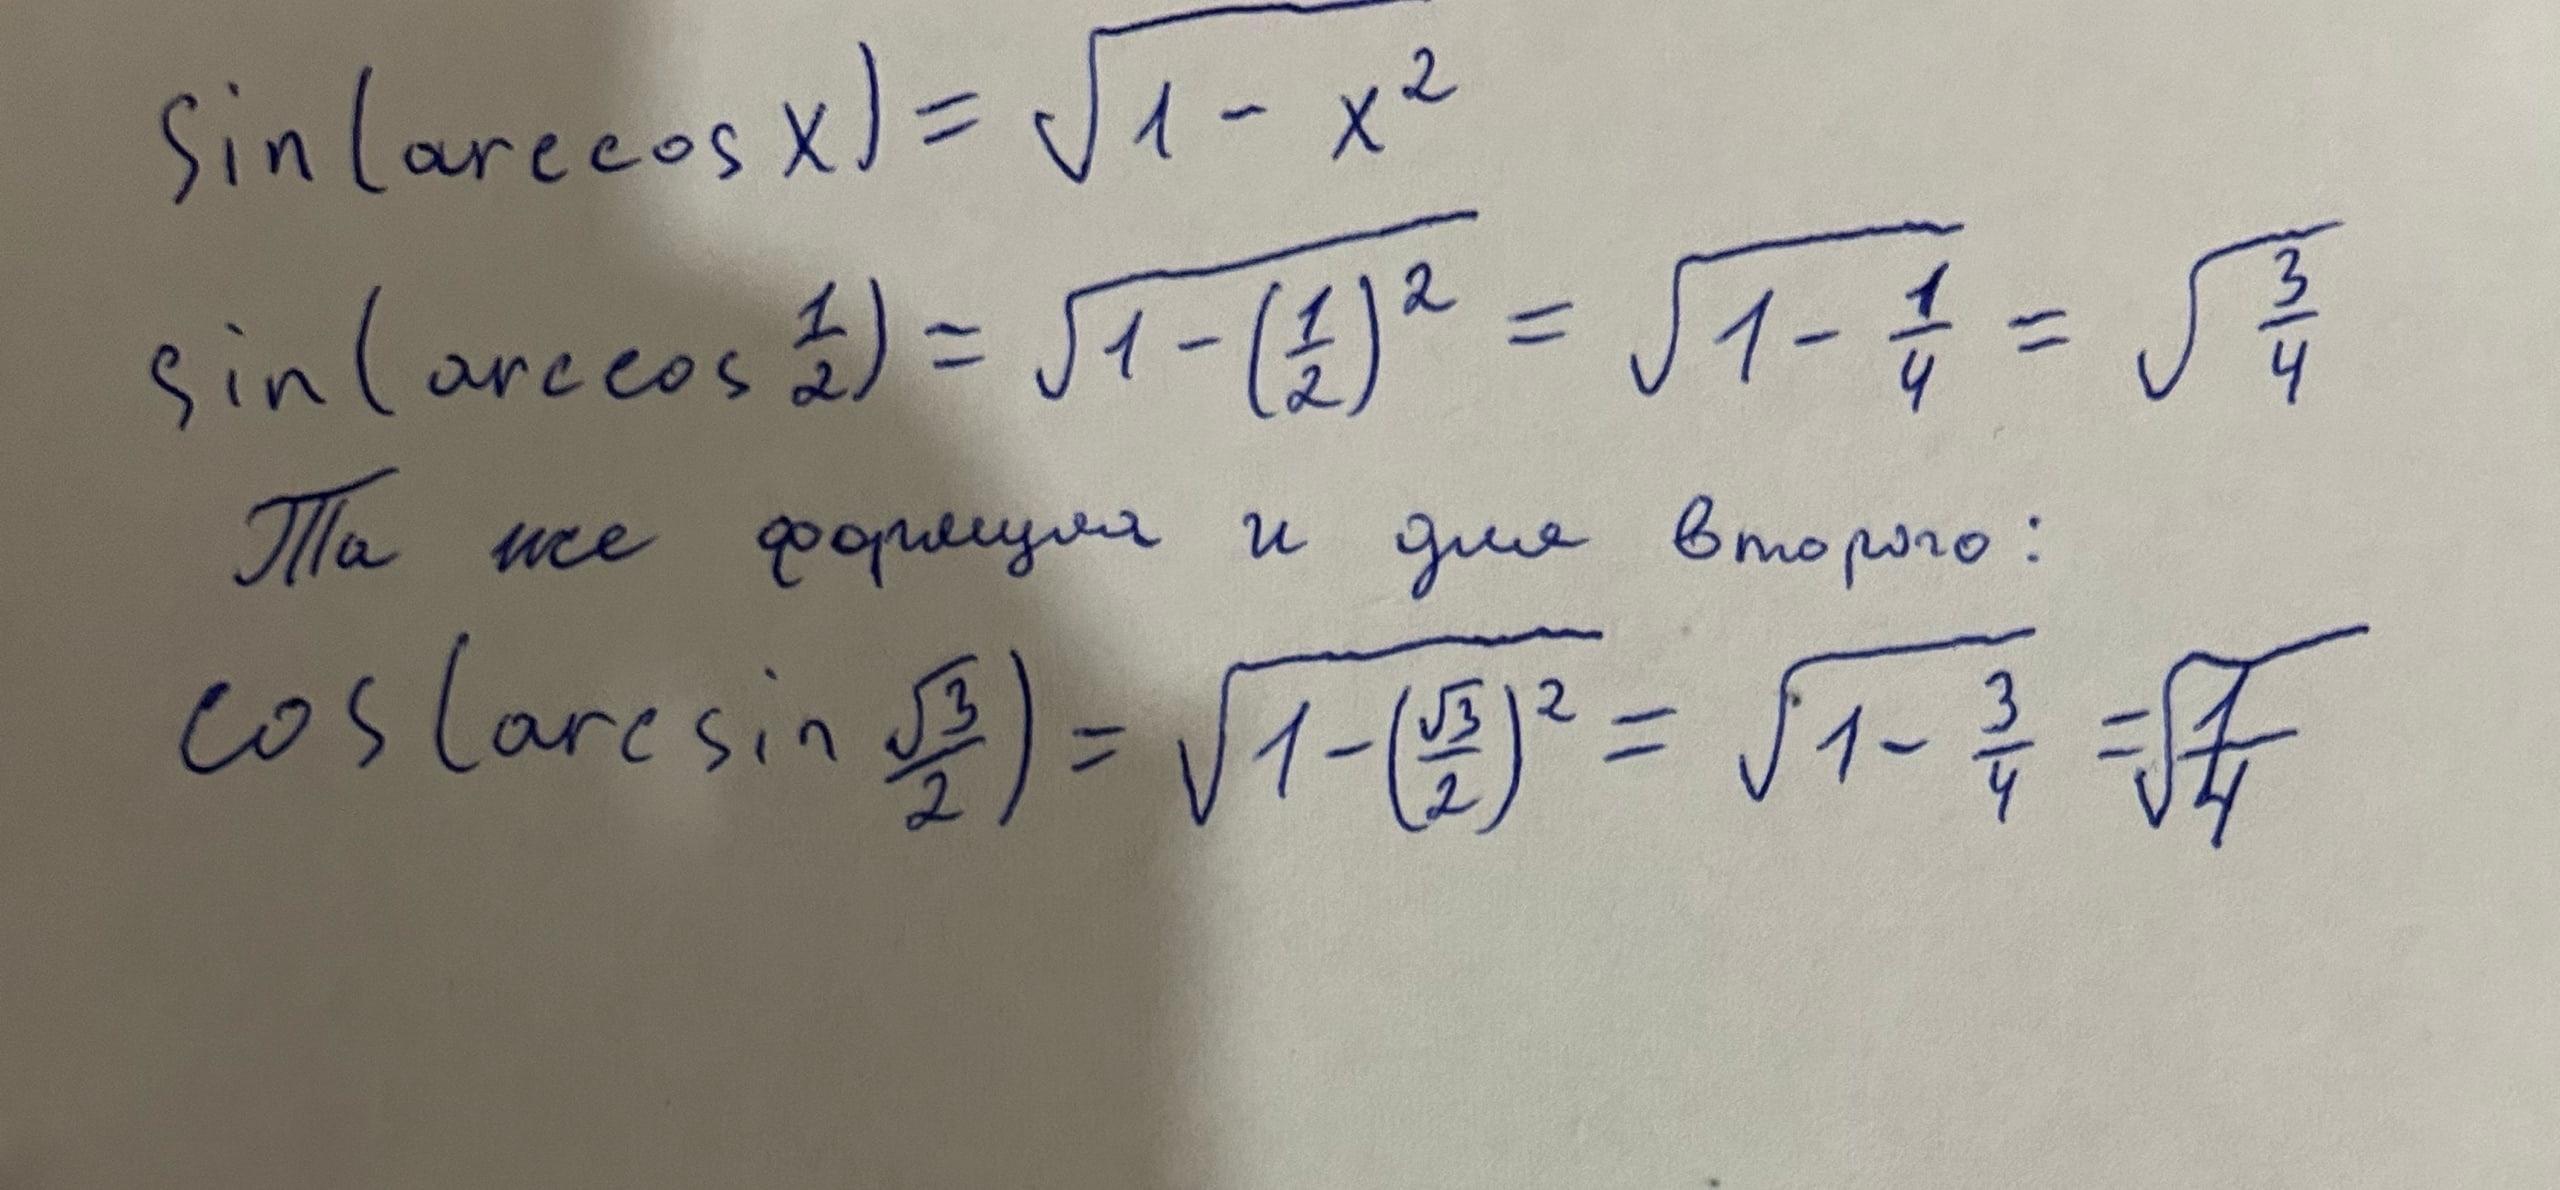 sin(arccos x) = √(1 - x²)
sin(arccos 1/2) = √(1 - (1/2)²) = √(1 - 1/4) = √(3/4)
Та же формула и для второго:
cos(arcsin √3/2) = √(1 - (√3/2)²) = √(1 - 3/4) = √(1/4)